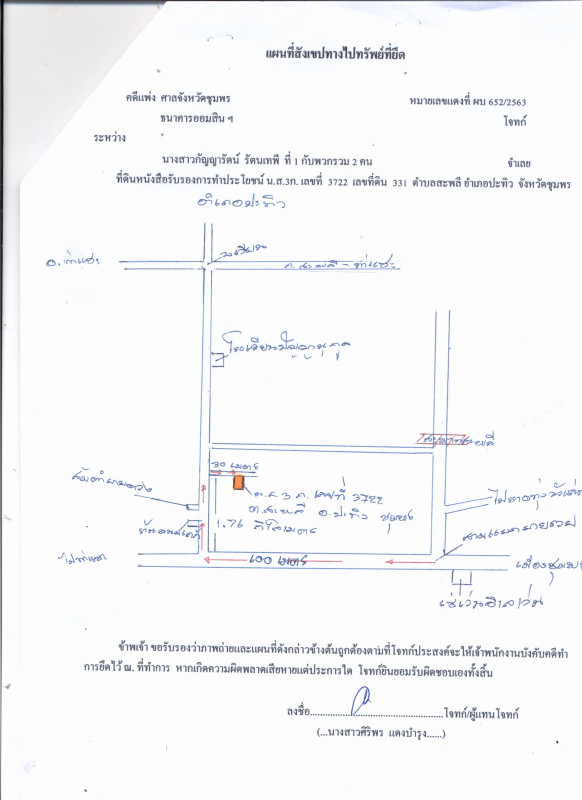 แผนที่สังเขปทางไปทรัพย์ที่ยึด
คดีแพ่ง ศาลจังหวัดชุมพร หมายเลขแดงที่ ผบ 652/2563
ธนาคารออมสิน ฯ โจทก์
ระหว่าง
นางสาวกัญญารัตน์ รัตนเทพี ที่ 1 กับพวกรวม 2 คน จำเลย
ที่ดินหนังสือรับรองการทำประโยชน์ น.ส.3ก. เลขที่ 3722 เลขที่ดิน 331 ตำบลสะพลี อำเภอปะทิว จังหวัดชุมพร
อำเภอปะทิว
วงเวียน
อ. ท่าแซะ
ถ. สะพลี - ท่าแซะ
โรงเรียน
30 เมตร
น.ส 3 ก. เลขที่ 3722
ต.สะพลี อ.ปะทิว ชุมพร
1.76 กิโลเมตร
ไปท่าแซะ
600 เมตร
สามแยก
เมืองชุมพร
เซเว่นอีเลฟเว่น
ข้าพเจ้า ขอรับรองว่าภาพถ่ายและแผนที่ดังกล่าวข้างต้นถูกต้องตามที่โจทก์ประสงค์จะให้เจ้าพนักงานบังคับคดีทำ
การยึดไว้ ณ. ที่ทำการ หากเกิดความผิดพลาดเสียหายแต่ประการใด โจทก์ยินยอมรับผิดชอบเองทั้งสิ้น
ลงชื่อ..................................................โจทก์/ผู้แทนโจทก์
(...นางสาวศิริพร แดงบำรุง......)